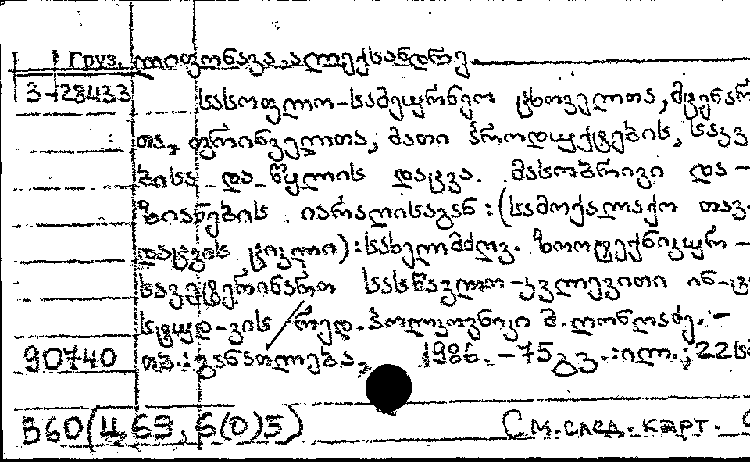 Груз. ლიფონავა ალექსანდრე
3-28433 სასოფლო-სამეურნეო ცხოველთა, მცენარ
თა, ფრინველთა, მათი პროდუქტების, საკვ
ბისა და წყლის დაცვა. მასობრივი და-
ზიანების იარაღისაგან: (სამოქალაქო თავ.
დაცვის ციკლი): სახელმძღვ. ზოოტექნიკურ-
სავეტერინარო სასწავლო-კვლევითი ინ-ტ
სტუდ-ვის / რედ. პოლკოვნიკი შ. ლონღაძე. -
90740 თბ.: განათლება, 1986. - 75გვ.: ილ.; 22სმ
В60(4,69,6(0)5) См. след. карт.